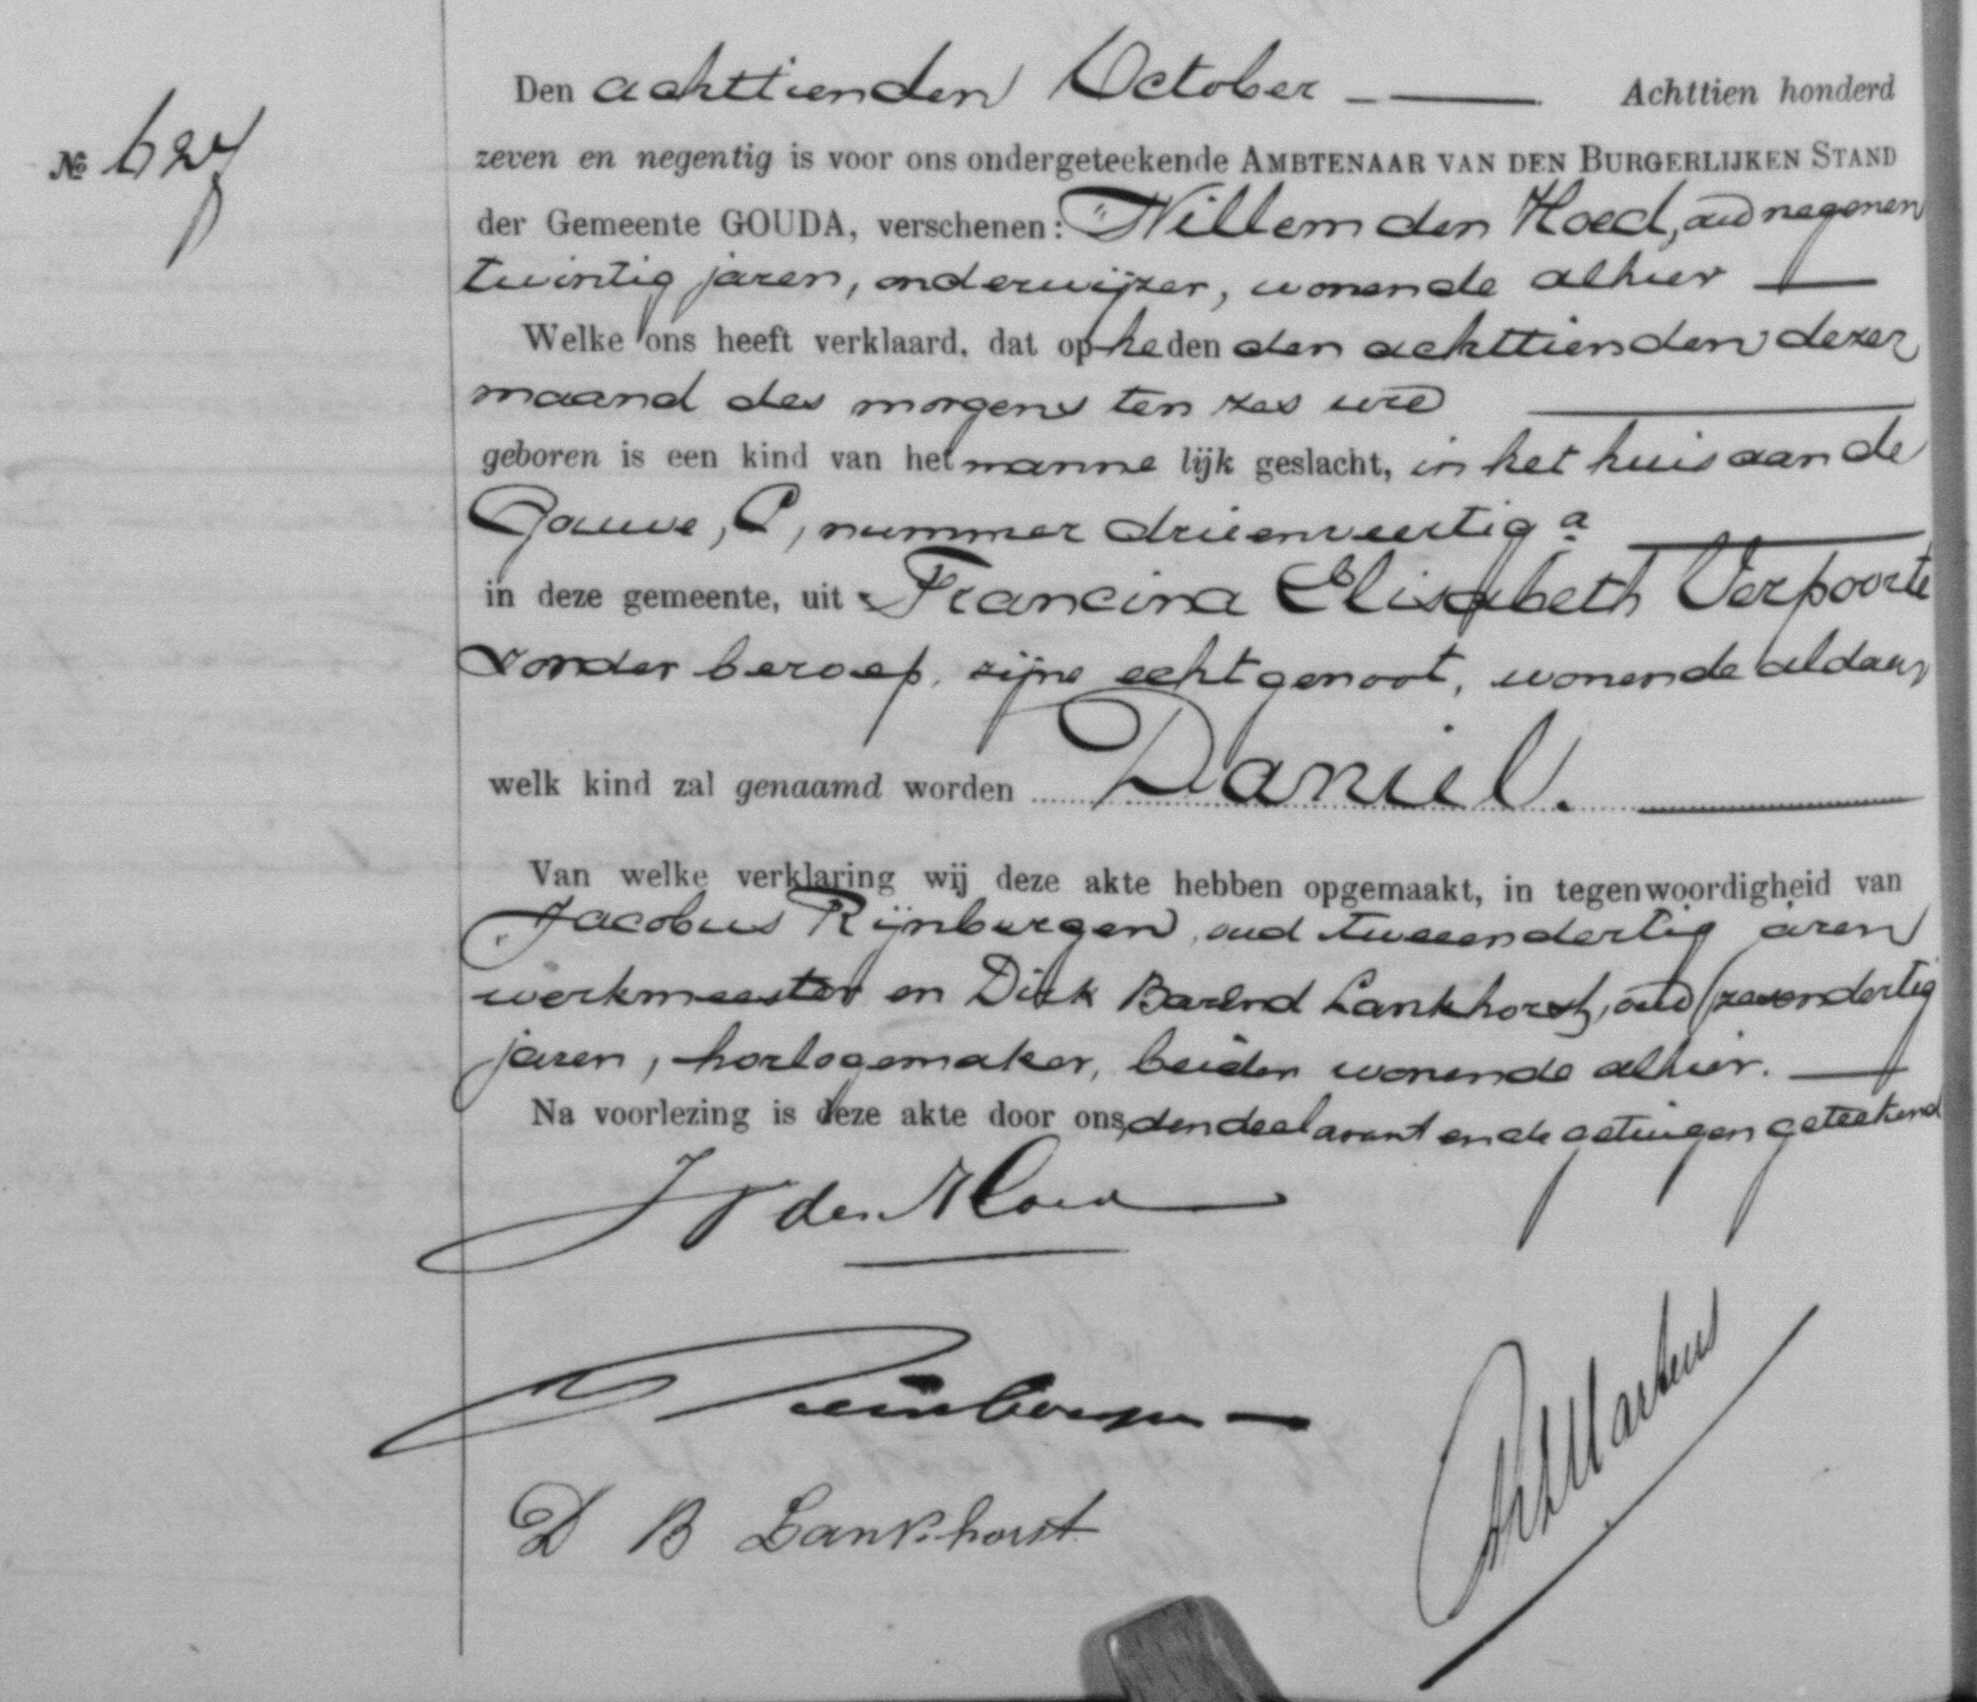 Den achttienden October Achttien honderd
№ 627
zeven en negentig is voor ons ondergeteekende AMBTENAAR VAN DEN BURGERLIJKEN STAND
der Gemeente GOUDA, verschenen: Willem den Hoed, oud negenen
twintig jaren, onderwijzer, wonende alhier
Welke ons heeft verklaard, dat op heden den achttienden dezer
maand des morgens ten zes ure
geboren is een kind van het mannelijk geslacht, in het huis aan de
Gouwe, C, nummer drieenveertig a
in deze gemeente, uit Francina Elisabeth Verpoorte
zonder beroep, zijne echtgenoot, wonende aldaar,
welk kind zal genaamd worden Daniel.
Van welke verklaring wij deze akte hebben opgemaakt, in tegenwoordigheid van
Jacobus Rijnburgen, oud tweeendertig jaren
werkmeester en Dirk Barend Lankhorst, oud zesendertig
jaren, horlogemaker, beiden wonende alhier.
Na voorlezing is deze akte door ons, den declarant en de getuigen geteekend
W den Hoed
Rijnburgen
D B Lankhorst
Martens